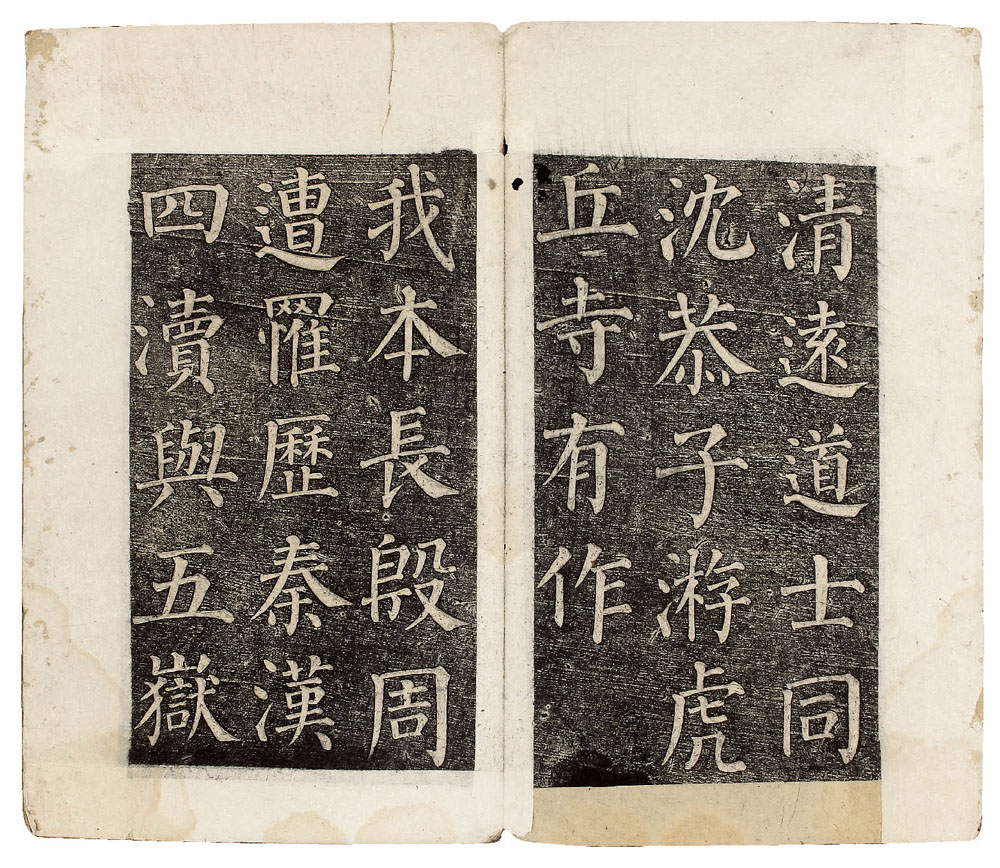 清遠道士同
沈恭子游虎
丘寺有作
我本長殷周
遭罹歷秦漢
四瀆與五嶽